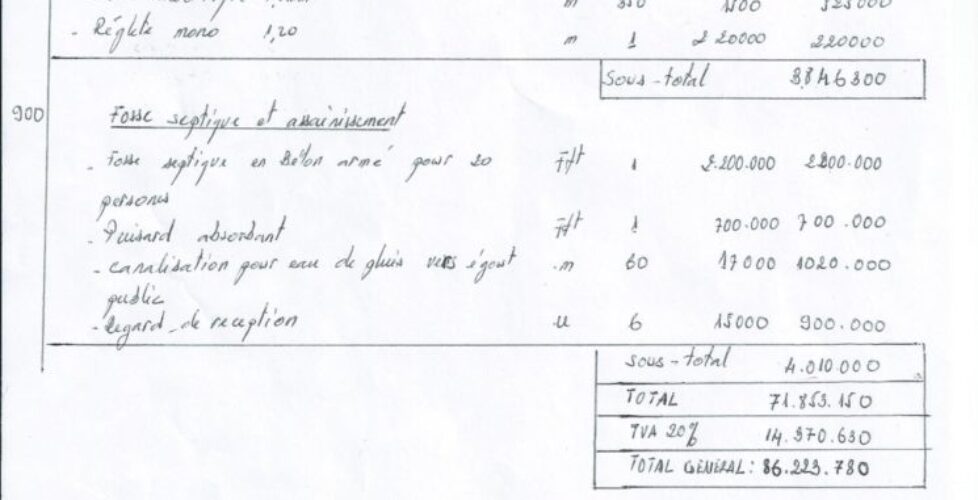 m 350 1500 525000
- Réglete mono 1,20 m 1 220000 220000
Sous-total 3846300
900
Fosse septique et assainissement
- Fosse septique en Béton armé pour 20 Fft 1 2.200.000 2200.000
persones
- Puisard absorbant Fft 1 700.000 700.000
- canalisation pour eau de pluis vers égout m 60 17000 1020.000
public
- Regard de reception u 6 15000 900.000
sous-total 4.010.000
TOTAL 71.853.150
TVA 20% 14.370.630
TOTAL GENERAL: 86.223.780